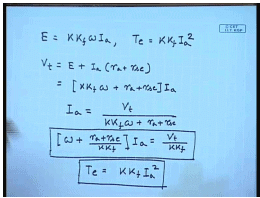 E = KK_f ω I_a, T_e = KK_f I_a²
V_t = E + I_a (r_a + r_se)
= [KK_f ω + r_a + r_se] I_a
I_a = V_t / (KK_f ω + r_a + r_se)
[ω + (r_a + r_se)/(KK_f)] I_a = V_t / (KK_f)
T_e = KK_f I_a²